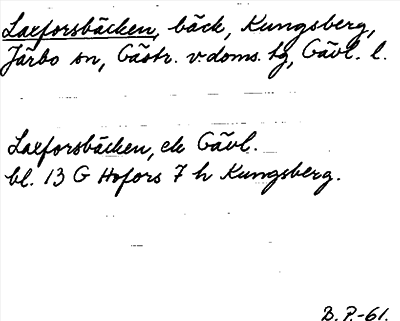 Laxforsbäcken, bäck, Kungsberg,
Järbo sn, Gästr. v doms. tg, Gävl. l.
Laxforsbäcken, ek Gävl.
bl. 13 G Hofors 7 h Kungsberg.
B. P.-61.